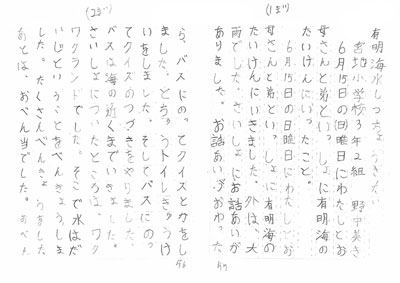 (1まい)
有明海水しつちょうさたい
宮地小学校3年2組 野中英き
6月15日の日曜日にわたしとお
母さんと弟といっしょに有明海の
たいけんにいったこと。
6月15日の日曜日にわたしとお
母さんと弟といっしょに有明海の
たいけんにいきました。外は、大
雨でした。さいしょにお話あいが
ありました。お話あいがおわった
(2まい)
ら、バスにのってクイズとかをし
ました。とちゅうトイレきゅうけ
いをしました。そしてバスにのっ
てクイズのつづきをやりました。
バスは海の近くまでいきました。
さいしょについたところは、ワク
ワクランドでした。そこで水はだ
いじということをべんきょうしま
した。たくさんべんきょうをした
あとは、おべん当でした。おべん